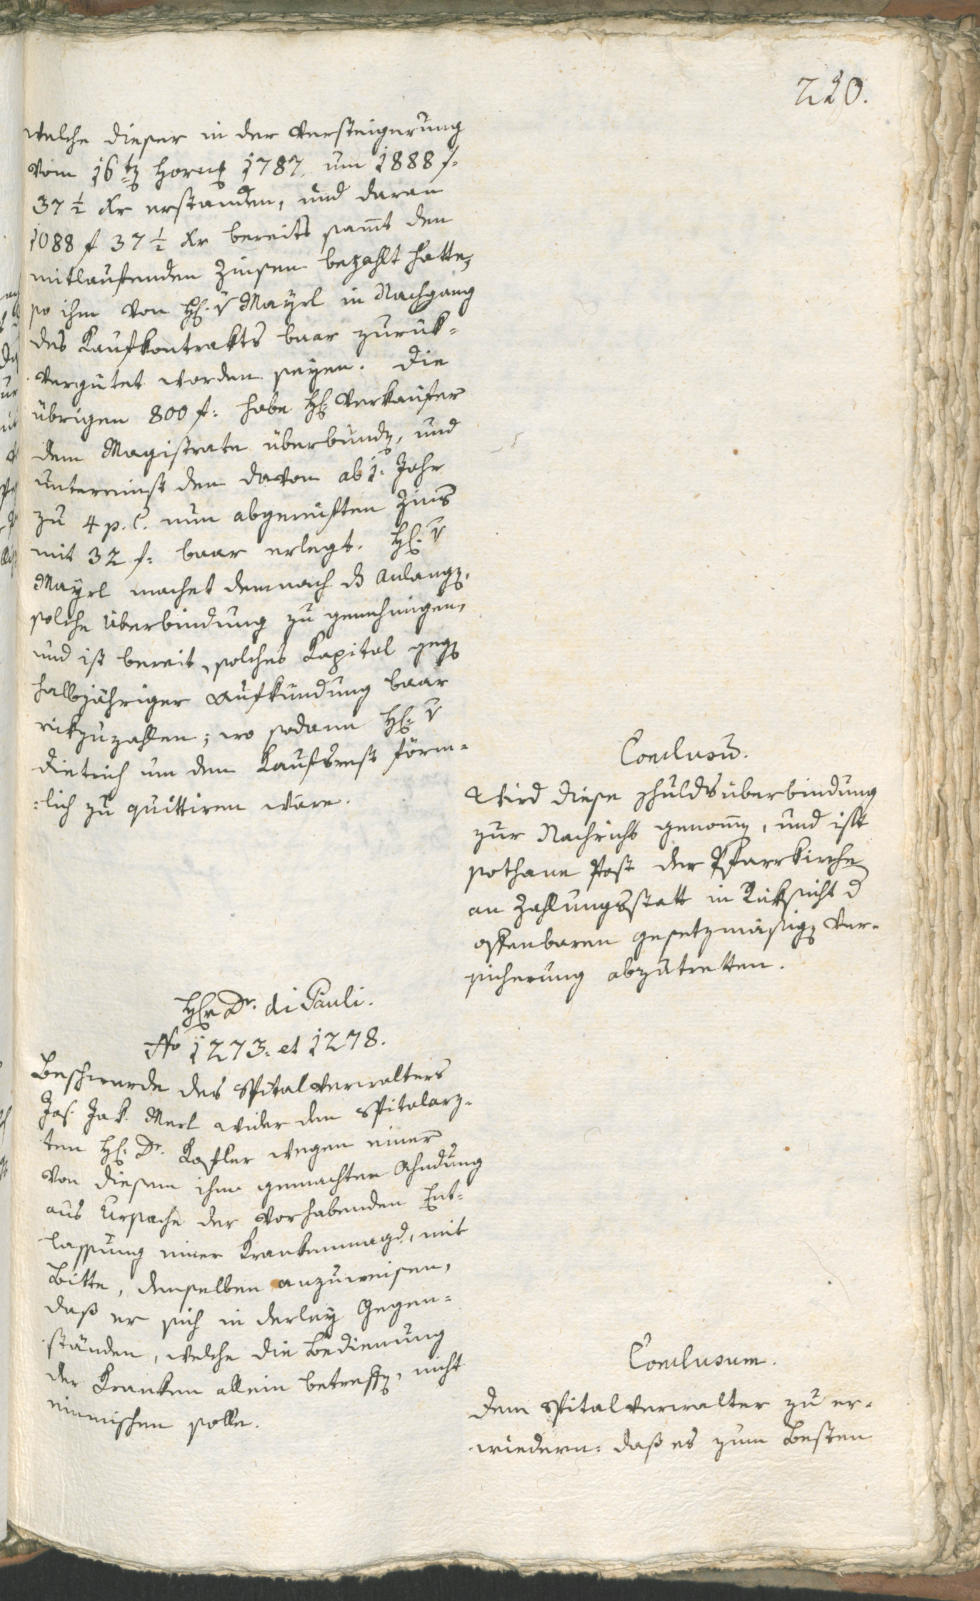 220.
welche dieser in der Versteigerung
vom 16ten Hornung 1787. um 1888 f.
37 ½ Xr erstanden, und daran
1088 f 37 ½ Xr bereits sammt den
mitlaufenden Zinsen bezahlt hatte,
so ihm von H: v Mayrl in Nachgang
des Kaufkontrakts baar zurük-
vergütet worden seyen. Die
übrigen 800 f: habe H: Verkaufer
dem Magistrate überbunden, und
untereinst den davon ab 1. Jahr
zu 4 p. C. nun abgereiften Zins
mit 32 f: baar erlegt. H: v
Mayrl machet demnach das Anlangen,
solche Überbindung zu genehmigen,
und ist bereit, solches Kapital gegen
halbjähriger Aufkündung baar
rükzuzahlen; wo sodann H: v
Dietrich um den Kaufsrest förm-
:lich zu quittiren wäre.
Conclusum.
Wird diese Schuldsüberbindung
zur Nachricht genommen, und ist
sothane Post der Pfarrkirche
an Zahlungsstatt in Rüksicht der
offenbaren gesetzmäsigen Ver-
sicherung abzutretten.
Herr Dr. di Pauli.
No 1273. et 1278.
Beschwerde des Spitalverwalters
Jos. Jak. Merl wider den Spitalarz-
ten H: Dr. Kofler wegen einer
von diesem ihm gemachten Ahndung
aus Ursache der vorhabenden Ent-
lassung einer Krankenmagd, mit
Bitte, demselben anzuweisen,
daß er sich in derley Gegen-
ständen, welche die Bedienung
der Kranken allein betreffen, nicht
einmischen solle.
Conclusum.
Dem Spitalverwalter zu er-
wiedern: daß es zum Besten